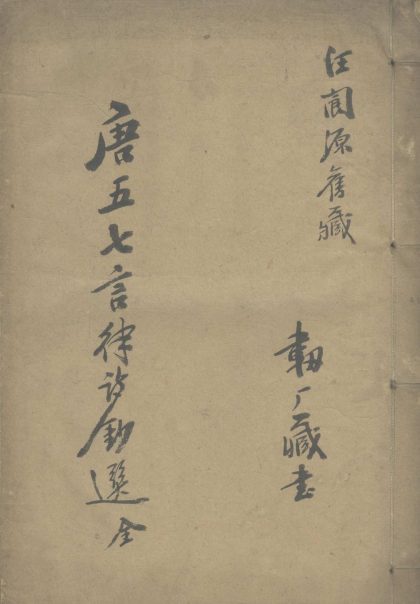 汪閬源舊藏
厂藏書
唐五七言律詩鈔選全